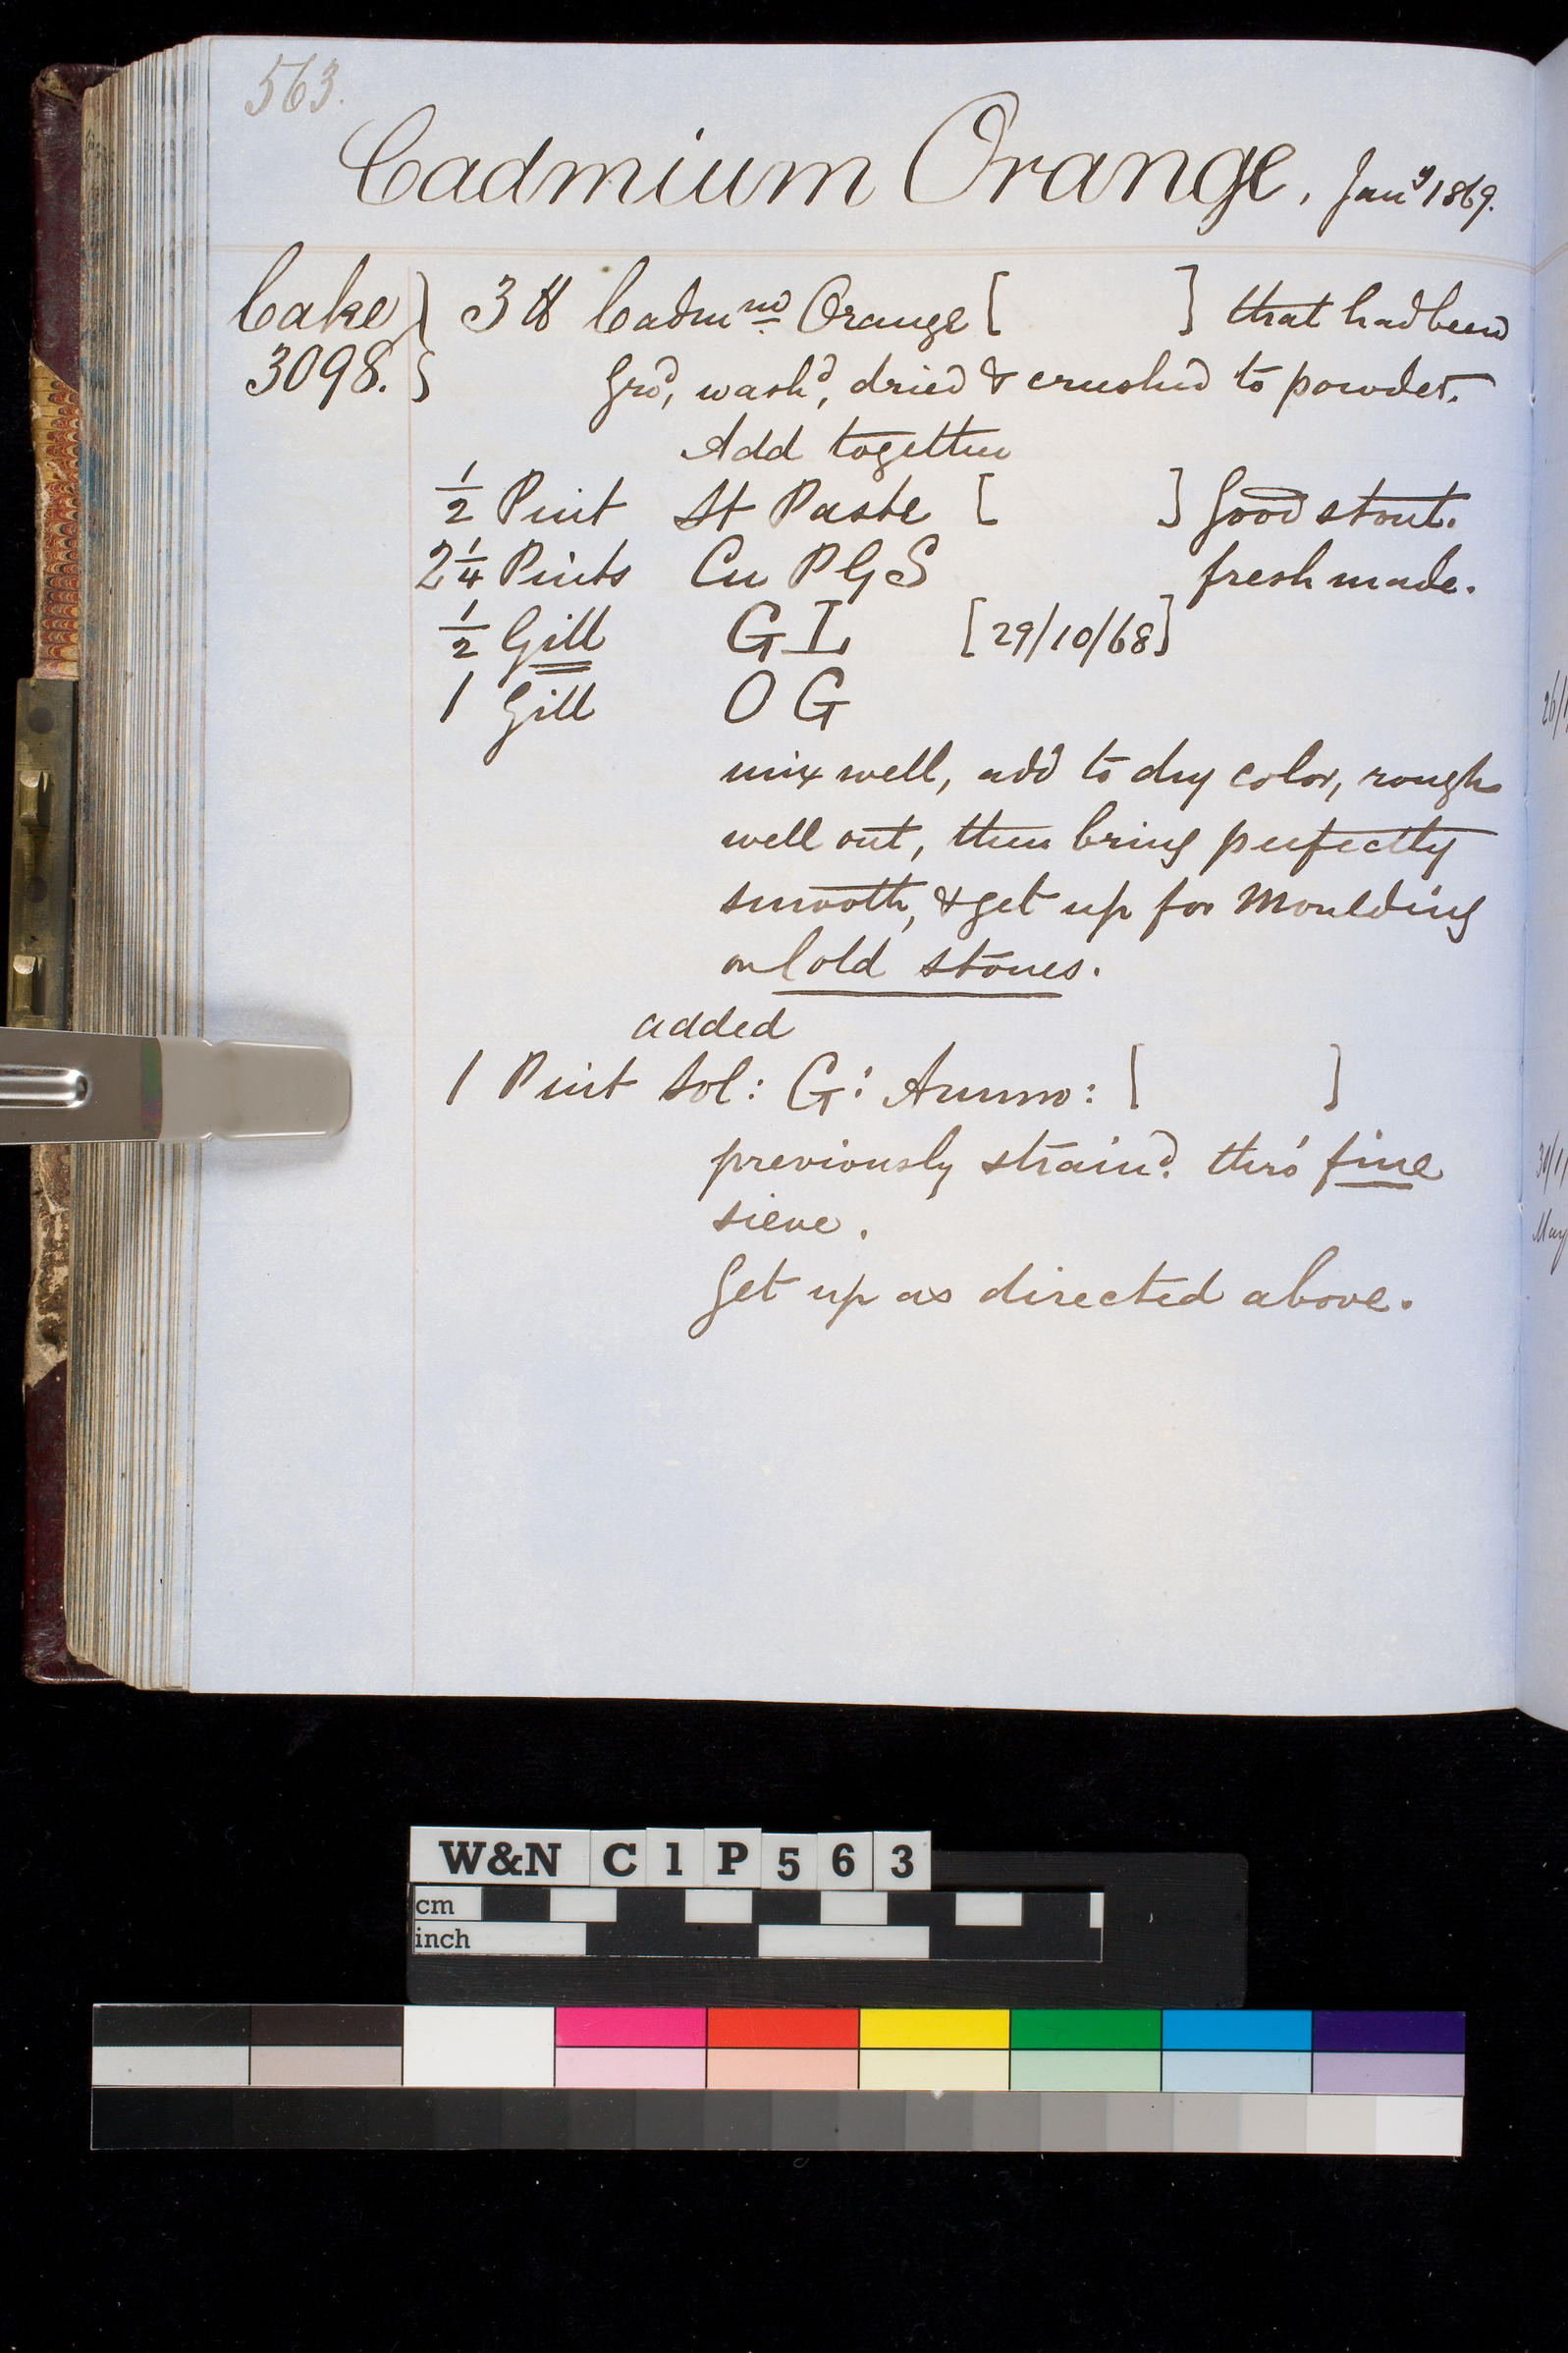 563.
Cadmium Orange. Jany 1869.
Cake } 3 lb Cadmm Orange [ ] that had been
3098. } Grd, washd, dried & crushed to powder.
Add together
1/2 Pint St Paste [ ] Good stout.
2 1/4 Pints Cu P G S fresh made.
1/2 Gill G L [29/10/68]
1 Gill O G
mix well, add to dry color, rough
well out, then bring perfectly
smooth, & get up for Moulding
on Cold stones.
added
1 Pint Sol: G: Ammo: [ ]
previously straind. thro' fine
sieve.
Get up as directed above.
26/1
30/1
May
W&N C1P563
cm
inch